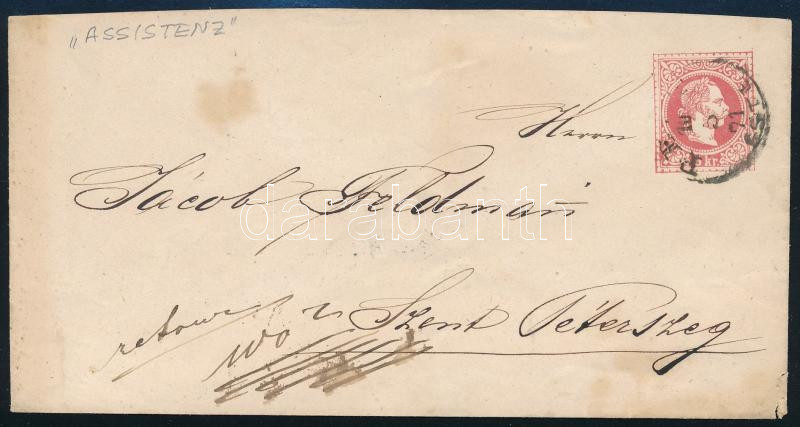 „ASSISTENZ"
Herrn
Jácob Feldmann
retour
wo
Szent Péterszeg
5 kr.
darabanth